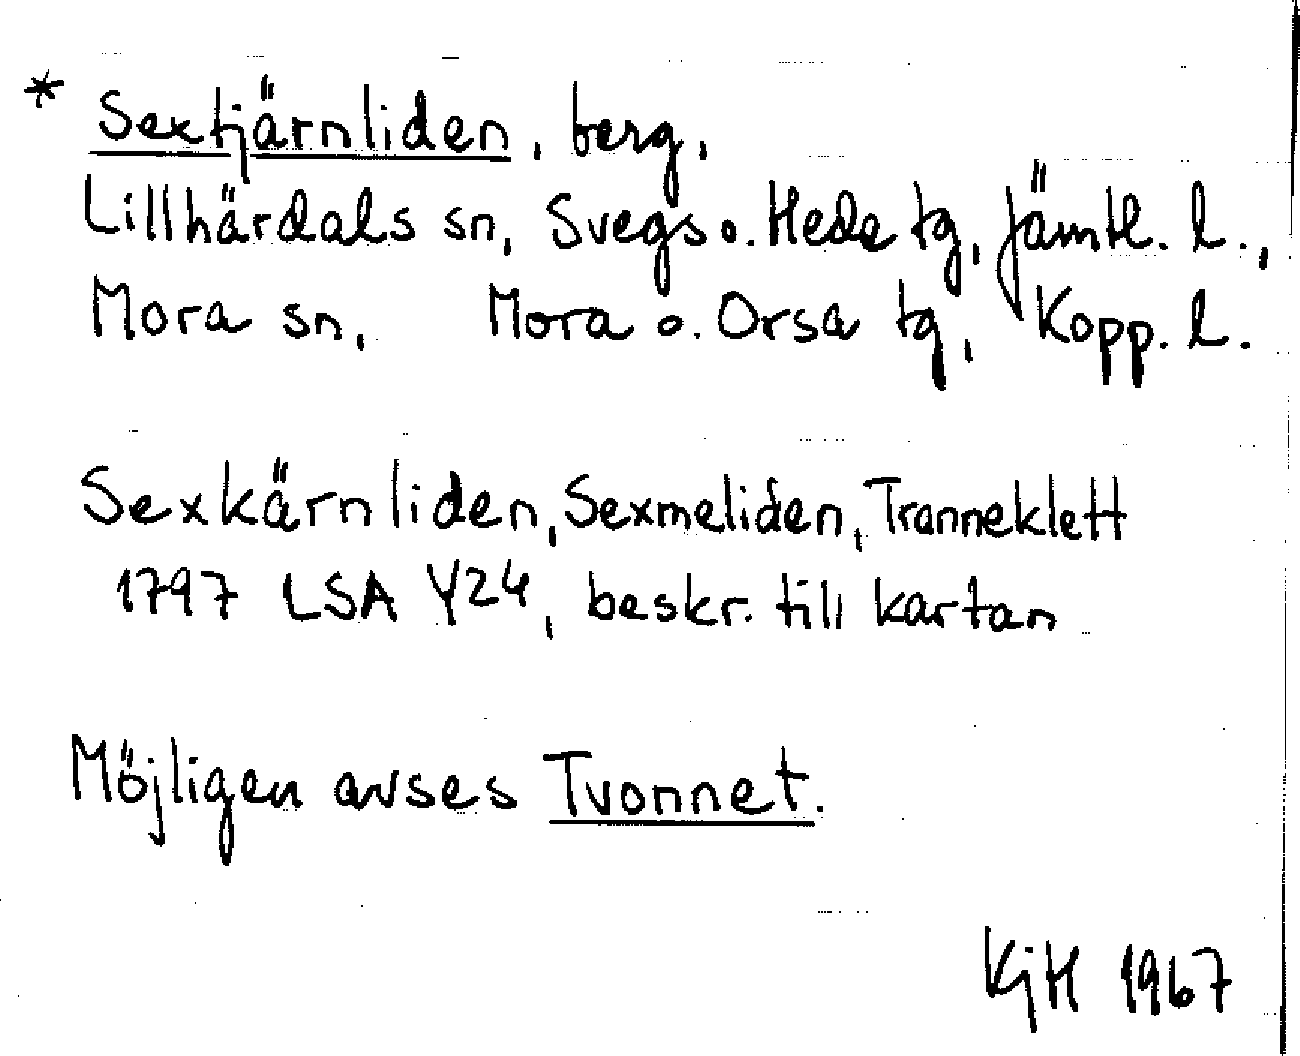 * Sextjärnliden, berg,
Lillhärdals sn, Svegs o. Hede tg, Jämtl. l.,
Mora sn, Mora o. Orsa tg, Kopp. l.
Sexkärnliden, Sexmeliden, Tranneklett
1797 LSA Y24, beskr. till kartan
Möjligen avses Tvonnet.
KjH 1967